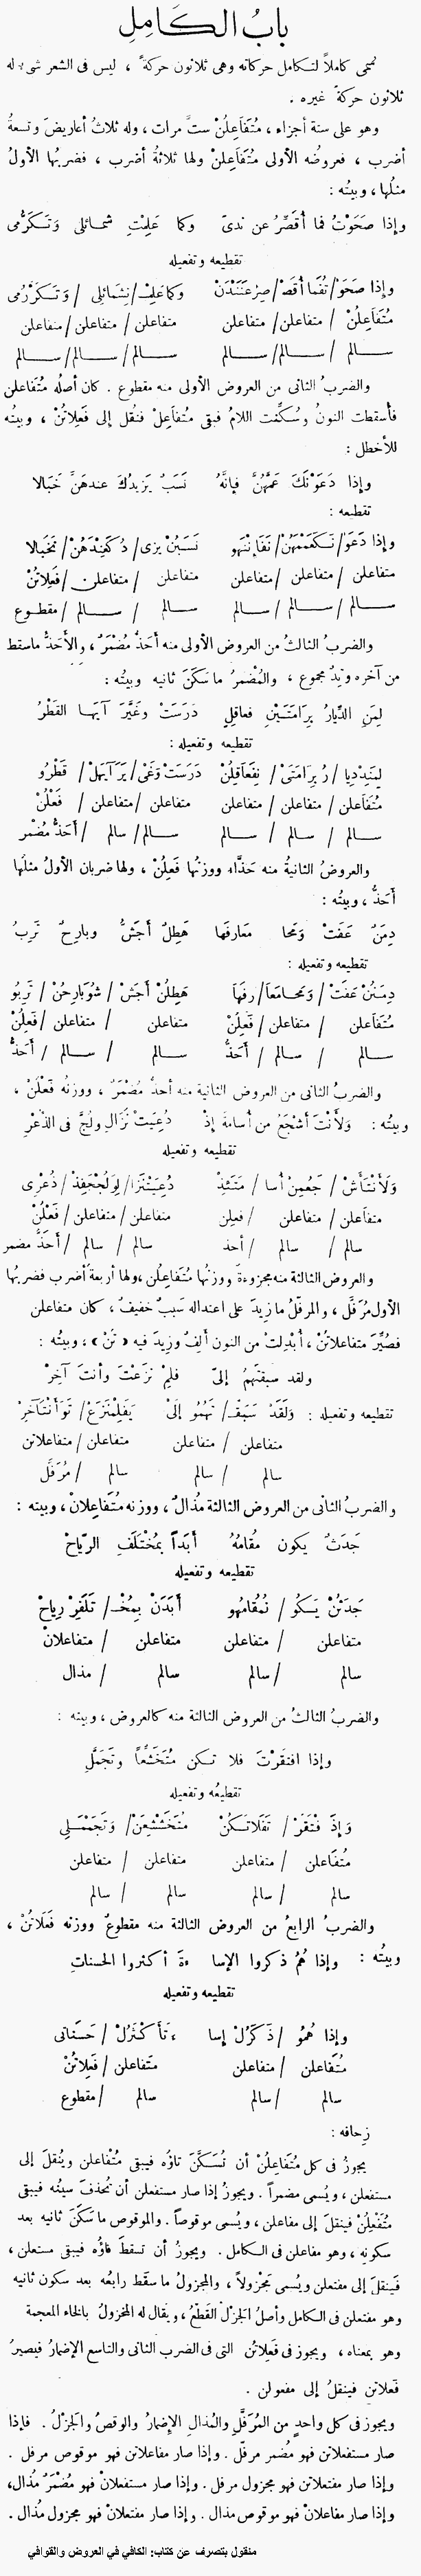 بابُ الكَامِلِ
سُمى كاملاً لتكامل حركاته وهى ثلاثون حركةً ، ليس فى الشعر شىء له
ثلاثون حركةً غيره .
وهو على ستة أجزاء ، مُتَفَاعِلُنْ ستَّ مرات ، وله ثلاثُ أعاريضَ وتسعةُ
أضرب ، فعروضُه الأولى مُتَفَاعِلنْ ولها ثلاثةُ أضرب ، فضربُها الأولُ
مثلُها ، وبيتُه :
وإذا صَحَوْتُ فما أُقَصِّرُ عن ندىً وكما عَلِمْتِ شمائلى وَتَكَرُّمى
تقطيعه وتفعيله
وإِذا صَحَوْ/ تُفَمَا أُقَصْ/ صِرُعَنْنَدَنْ وكما عَلِمْـ/ تِشَمَائلِى / وَتَكَرْرُمى
مُتَفَاعِلُنْ / متفاعلن / متفاعلن متفاعلن / متفاعلن / متفاعلن
سالم / سالم / سالم سالم / سالم / سالم
والضربُ الثانى من العروض الأولى منه مقطوع . كان أصلُه مُتَفاعلن
فأسقطت النونُ وسُكِّنت اللامُ فبقى متُفاَعِلْ فنُقل إلى فَعِلاتُنْ ، وبيتُه
للأخطل :
وإِذا دَعَوْنَكَ عَمَّهُنَّ فإنَّهُ نَسَبٌ يَزيدُكَ عندهَنَّ خَبَالا
تقطيعه :
وإِذا دَعَوْ/ نَكَعَمْمَهُنْ/ نَفَإنْنَهو نَسَبُنْ يزى/ دُكَعِنْدَهُنْ/ نَخَبالا
متفاعلن / متفاعلن / متفاعلن متفاعلن / متفاعلن / فَعلاتُنْ
سالم / سالم / سالم سالم / سالم / مقطوع
والضربُ الثالثُ من العروض الأولى منه أحَذُّ مُضْمَرٌ ، والأَحَذُّ ماسقط
من آخره وتِدٌ مجموع ، والمُضْمرُ ما سَكَنَ ثانيه وبيتُه :
لِمَنِ الدِّيارُ بِرَامَتَيْنِ فعاقِلٍ دَرَسَتْ وغَيَّرَ آيَها القَطْرُ
تقطيعه وتفعيله :
لِمَنِدْدِيا/ رُ بِرَامَتَىْ/ نِفَعَاقِلُنْ دَرَسَتْ وَغَىْ/ يَرَ آيَهَلْ/ قَطْرُو
مُتَفَاعلن / متفاعلن / متفاعلن متفاعلن / متفاعلن / فَعْلُنْ
سالم / سالم / سالم سالم / سالم / أحَذُّ مُضْمر
والعروضُ الثانيةُ منه حَذَّاء ووزنُها فَعِلُنْ ، ولها ضربان الأولُ مثلُها
أَحَذُّ ، وبيتُه :
دِمَنٌ عَفَتْ وَمحا مَعَارفَها هَطِلٌ أَجَشُّ وبارِحٌ تَرِبُ
تقطيعه وتفعيله :
دِمَنُنْ عَفَتْ / وَمَحامَعَا/ رِفَهَا هَطِلُنْ أَجَشْ / شُوَبَارِحُنْ / تَرِبُو
مُتَفَاعلن / متفاعلن / فَعِلُنْ متفاعلن / متفاعلن / فَعِلُنْ
سالم / سالم / أحَذُّ سالم / سالم / أحَذُّ
والضربُ الثانى من العروض الثانية منه أحذُّ مُضْمَرٌ ، ووزنُه فَعْلُنْ ،
وبيتُه : وَلأَنْتَ أشْجَعُ من أسامةَ إذْ دُعِيَتْ نَزَالِ ولُجَّ فى الذُّعْرِ
تقطيعه وتفعيله
وَلَأنْتَأَشْ/ جَعُمِنْ أُسا / مَتَئِذْ دُعِيَتْنَزَا/ لِوَلُجْجَفِذْ/ ذُعْرِى
متفاعلن / متفاعلن / فعلن متفاعلن / متفاعلن / فَعْلُنْ
سالم / سالم / أحذ سالم / سالم / أحَذُّ مضمر
والعروضُ الثالثة منه مجزوءة ووزنُها مُتَفاعِلُن ، ولها أربعةُ أضرب فضربُها
الأول مُرَفَّل ، والمرفَّلُ ما زِيدَ على اعتداله سَببٌ خفيفٌ ، كان متفاعلن
فصُيِّرَ متفاعلاتُنْ ، أُبْدِلتْ من النون ألِفٌ وزِيدَ فيه « تُنْ » ، وبيتُه :
ولقد سبقتَهمُ إلىَّ فلِمْ نزَعْتَ وأنتَ آخِرْ
تقطيعه وتفعيله : وَلَقَدْ سَبَقْـ/ تَهُمُو إلَىْ يَفَلِمْنَزَعْ/ تَوَأنْتَآخِرْ
متفاعلن / متفاعلن متفاعلن / متفاعلاتن
سالم / سالم سالم / مُرَفَّل
والضربُ الثانى من العروض الثالثة مُذالٌ ، ووزنه مُتَفَاعِلانْ ، وبيته :
جَدَثٌ يكون مُقامُهُ أبَداً بمُخْتَلَفِ الرِّياحْ
تقطيعه وتفعيله
جَدَثُنْ يَكُو / نُمُقَامُهو أَبَدَنْ بِمُخْـ/ تَلَفِرْ رِياحْ
متفاعلن / متفاعلن متفاعلن / متفاعلانْ
سالم / سالم سالم / مذال
والضربُ الثالثُ من العروض الثالثة منه كالعروض ، وبيته :
وإذا افتقَرْتَ فلا تكن مُتَخَشِّعاً وتَجَمَّلِ
تقطيعُه وتفعيله
وَإذَ فْتَقَرْ/ تَفَلاتَكُنْ مُتَخَشْشِعَنْ/ وَتَجَمْمَلِى
مُتَفَاعلن / متفاعلن متفاعلن / متفاعلن
سالم / سالم سالم / سالم
والضربُ الرابعُ من العروض الثالثة منه مقطوعٌ ووزنه فَعَلَاتُنْ ،
وبيتُه : وإذا هُمُ ذكروا الإسا ءةَ أكثروا الحسناتِ
تقطيعه وتفعيله
وإذا هُمُو / ذَكَرُلْ إسا ءَتَأَكْثَرُلْ / حَسَنَاتى
مُتَفَاعلن / متفاعلن متَفاعلن / فَعِلاتُنْ
سالم / سالم سالم / مقطوع
زِحافه :
يجوزُ فى كل متُفاعِلُنْ أن تُسَكَّنَ تاؤُه فيبقى مُتْفاعلن ويُنقلَ إلى
مستفعلن ، ويُسمى مضمراً . ويجوزُ إذا صار مستفعلن أن تُحذفَ سينُه فيبقى
مُتَفْعِلُنْ فينقلَ إلى مفاعلن ، ويُسمى موقوصاً . والموقوص ما سَكَنَ ثانيه بعد
سكونه ، وهو مفاعلن فى الكامل . ويجوزُ أن تسقطَ فاؤُه فيبقى مستعلن ،
فَيَنقلَ إلى مفتعلن ويُسمى مَجْزولاً ، والمجزولُ ما سقَط رابعُه بعد سكون ثانيه
وهو مفتعلن فى الكامل وأصلُ الجَزْلِ القَطْعُ ، ويقال له المخزولُ بالخاء المعجمة
وهو بمعناه ، ويجوز فى فَعِلاتُن التى فى الضرب الثانى والتاسع الإضمارُ فيصيرُ
فَعْلاتن فينقلُ إلى مفعولن .
ويجوز فى كل واحدٍ من المُرَفَّلِ والمُذالِ الإضمارُ والوقصُ والجزْلُ . فإذا
صار مستفعلاتن فهو مُضمر مرفّل . وإذا صار مفاعلاتن فهو موقوص مرفل .
وإذا صار مفتعلاتن فهو مجزول مرفل . وإذا صار مستفعلانْ فهو مُضْمَرٌ مُذال،
وإذا صار مفاعلانْ فهو موقوص مذال . وإذا صار مفتعلانْ فهو مجزول مُذال .
منقول بتصرف عن كتاب: الكافي في العروض والقوافي